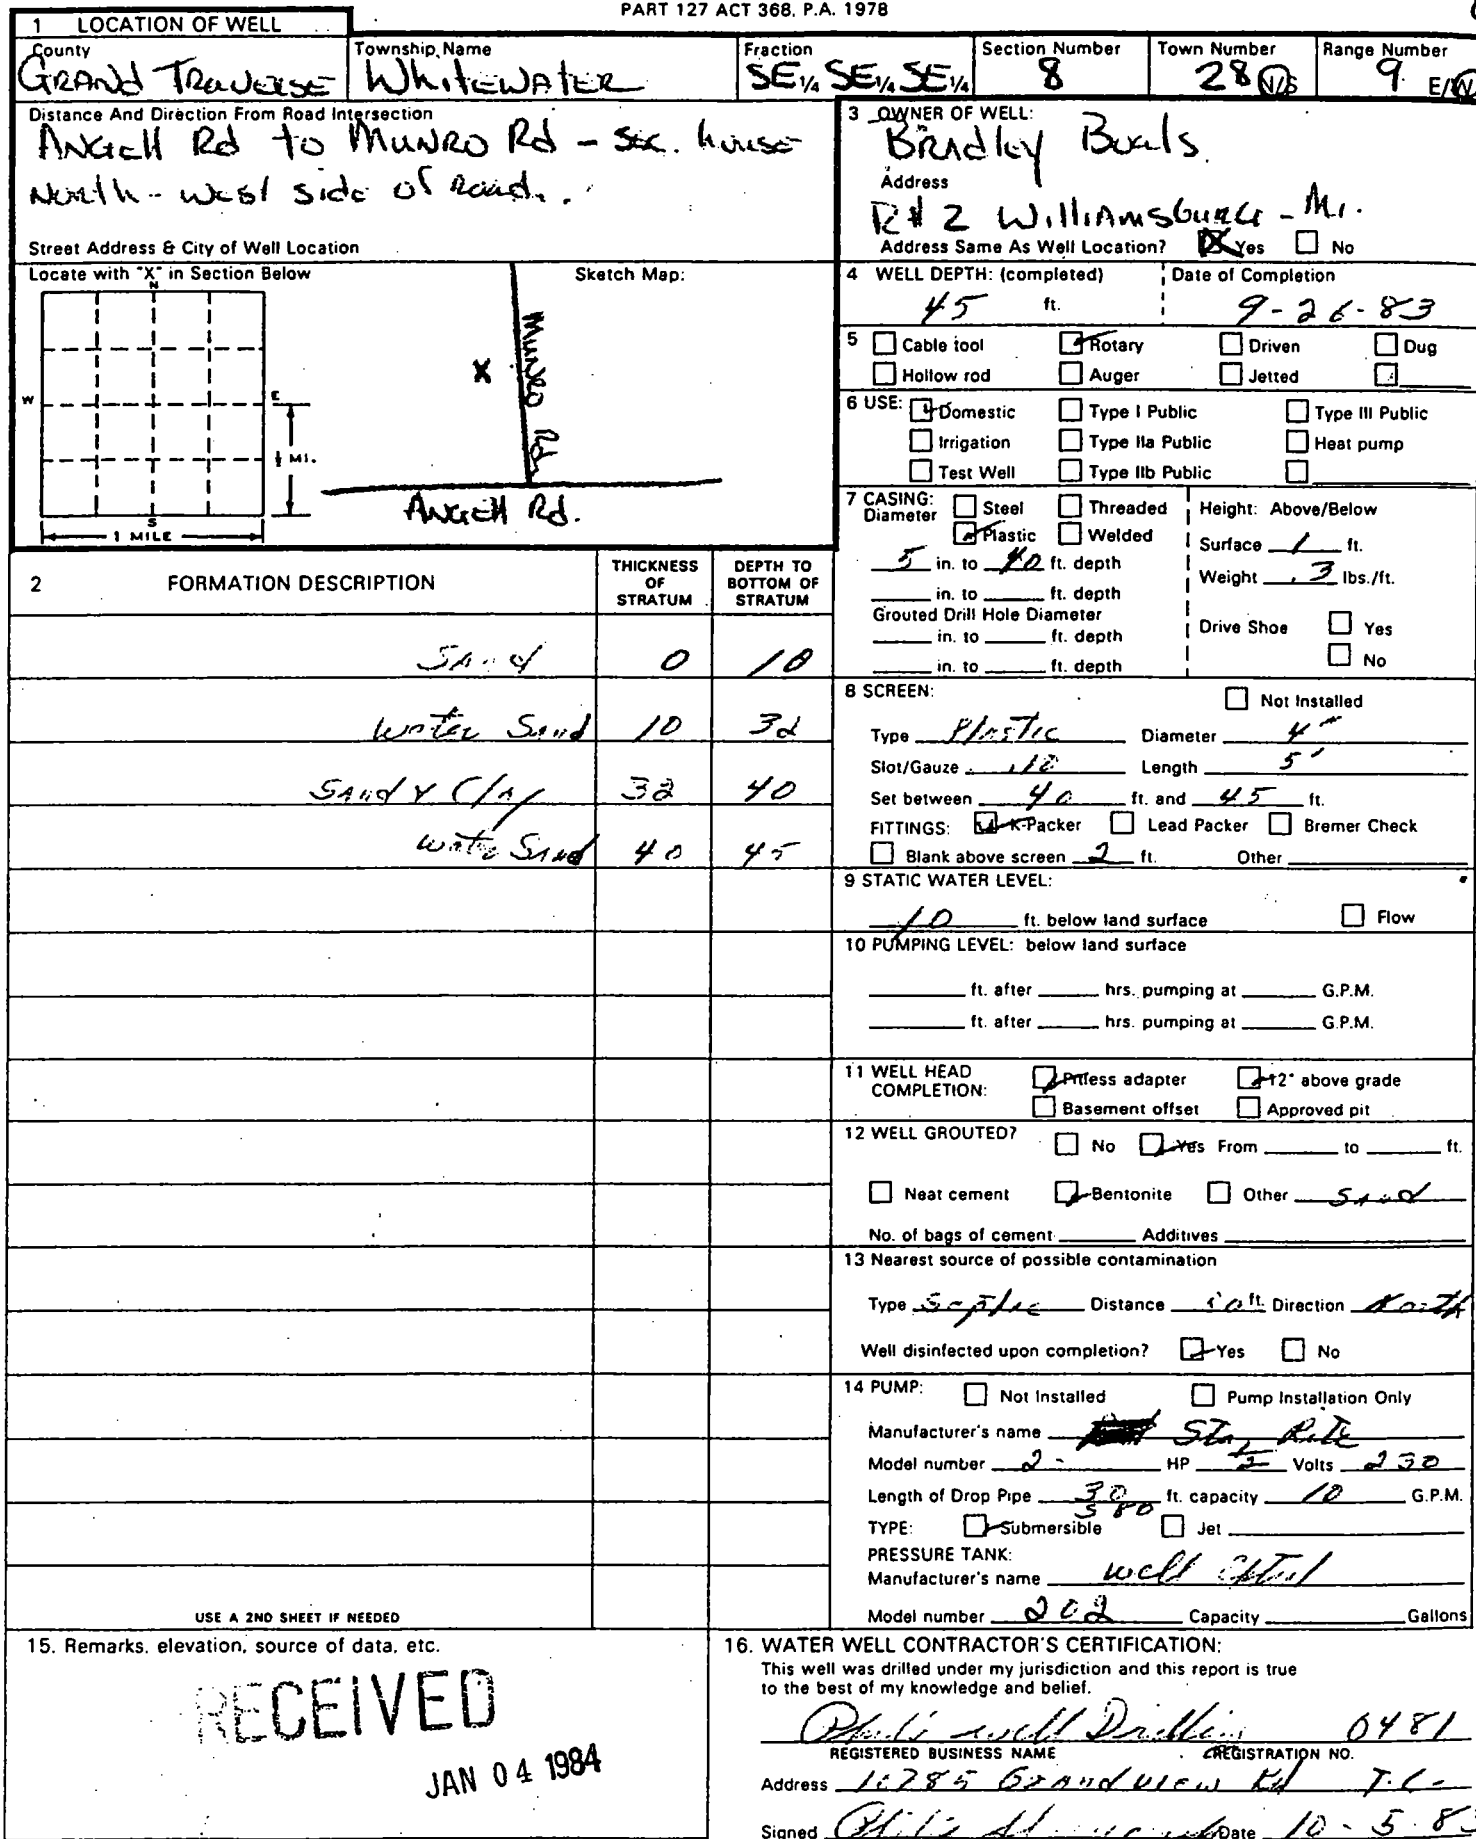 PART 127 ACT 368, P.A. 1978
1 LOCATION OF WELL
County
GRAND TRAVERSE
Township Name
WHITEWATER
Fraction
SE¼ SE¼ SE¼
Section Number
8
Town Number
28 N/S
Range Number
9 E/W
Distance And Direction From Road Intersection
ANGEll Rd to MUNRO Rd - sec. house
North - west side of Road.
Street Address & City of Well Location
Locate with "X" in Section Below
N
W
E
½ MI.
S
1 MILE
Sketch Map:
X
MUNRO Rd.
ANGEll Rd.
2 FORMATION DESCRIPTION
THICKNESS OF STRATUM
DEPTH TO BOTTOM OF STRATUM
Sand 0 10
Water Sand 10 32
Sandy Clay 32 40
Water Sand 40 45
USE A 2ND SHEET IF NEEDED
3 OWNER OF WELL:
Bradley
Address
R# 2 Williamsburg - Mi.
Address Same As Well Location? Yes No
4 WELL DEPTH: (completed)
45 ft.
Date of Completion
9-26-83
5 Cable tool Rotary Driven Dug
Hollow rod Auger Jetted
6 USE: Domestic Type I Public Type III Public
Irrigation Type IIa Public Heat pump
Test Well Type IIb Public
7 CASING: Steel Threaded
Diameter Plastic Welded
5 in. to 40 ft. depth
in. to ft. depth
Grouted Drill Hole Diameter
in. to ft. depth
in. to ft. depth
Height: Above/Below
Surface 1 ft.
Weight .3 lbs./ft.
Drive Shoe Yes
No
8 SCREEN: Not Installed
Type Plastic Diameter 4"
Slot/Gauze .10 Length 5'
Set between 40 ft. and 45 ft.
FITTINGS: K-Packer Lead Packer Bremer Check
Blank above screen 2 ft. Other
9 STATIC WATER LEVEL:
10 ft. below land surface Flow
10 PUMPING LEVEL: below land surface
ft. after hrs. pumping at G.P.M.
ft. after hrs. pumping at G.P.M.
11 WELL HEAD COMPLETION: Pitless adapter 12" above grade
Basement offset Approved pit
12 WELL GROUTED? No Yes From to ft.
Neat cement Bentonite Other Sand
No. of bags of cement Additives
13 Nearest source of possible contamination
Type Septic Distance ft. Direction North
Well disinfected upon completion? Yes No
14 PUMP: Not Installed Pump Installation Only
Manufacturer's name Sta Rite
Model number 2- HP ½ Volts 230
Length of Drop Pipe 30 ft. capacity 10 G.P.M.
TYPE: Submersible Jet
PRESSURE TANK:
Manufacturer's name well
Model number 202 Capacity Gallons
15. Remarks, elevation, source of data, etc.
RECEIVED
JAN 04 1984
16. WATER WELL CONTRACTOR'S CERTIFICATION:
This well was drilled under my jurisdiction and this report is true
to the best of my knowledge and belief.
well Drilling 0481
REGISTERED BUSINESS NAME REGISTRATION NO.
Address Grandview Rd T.C.
Signed Date 10-5-83